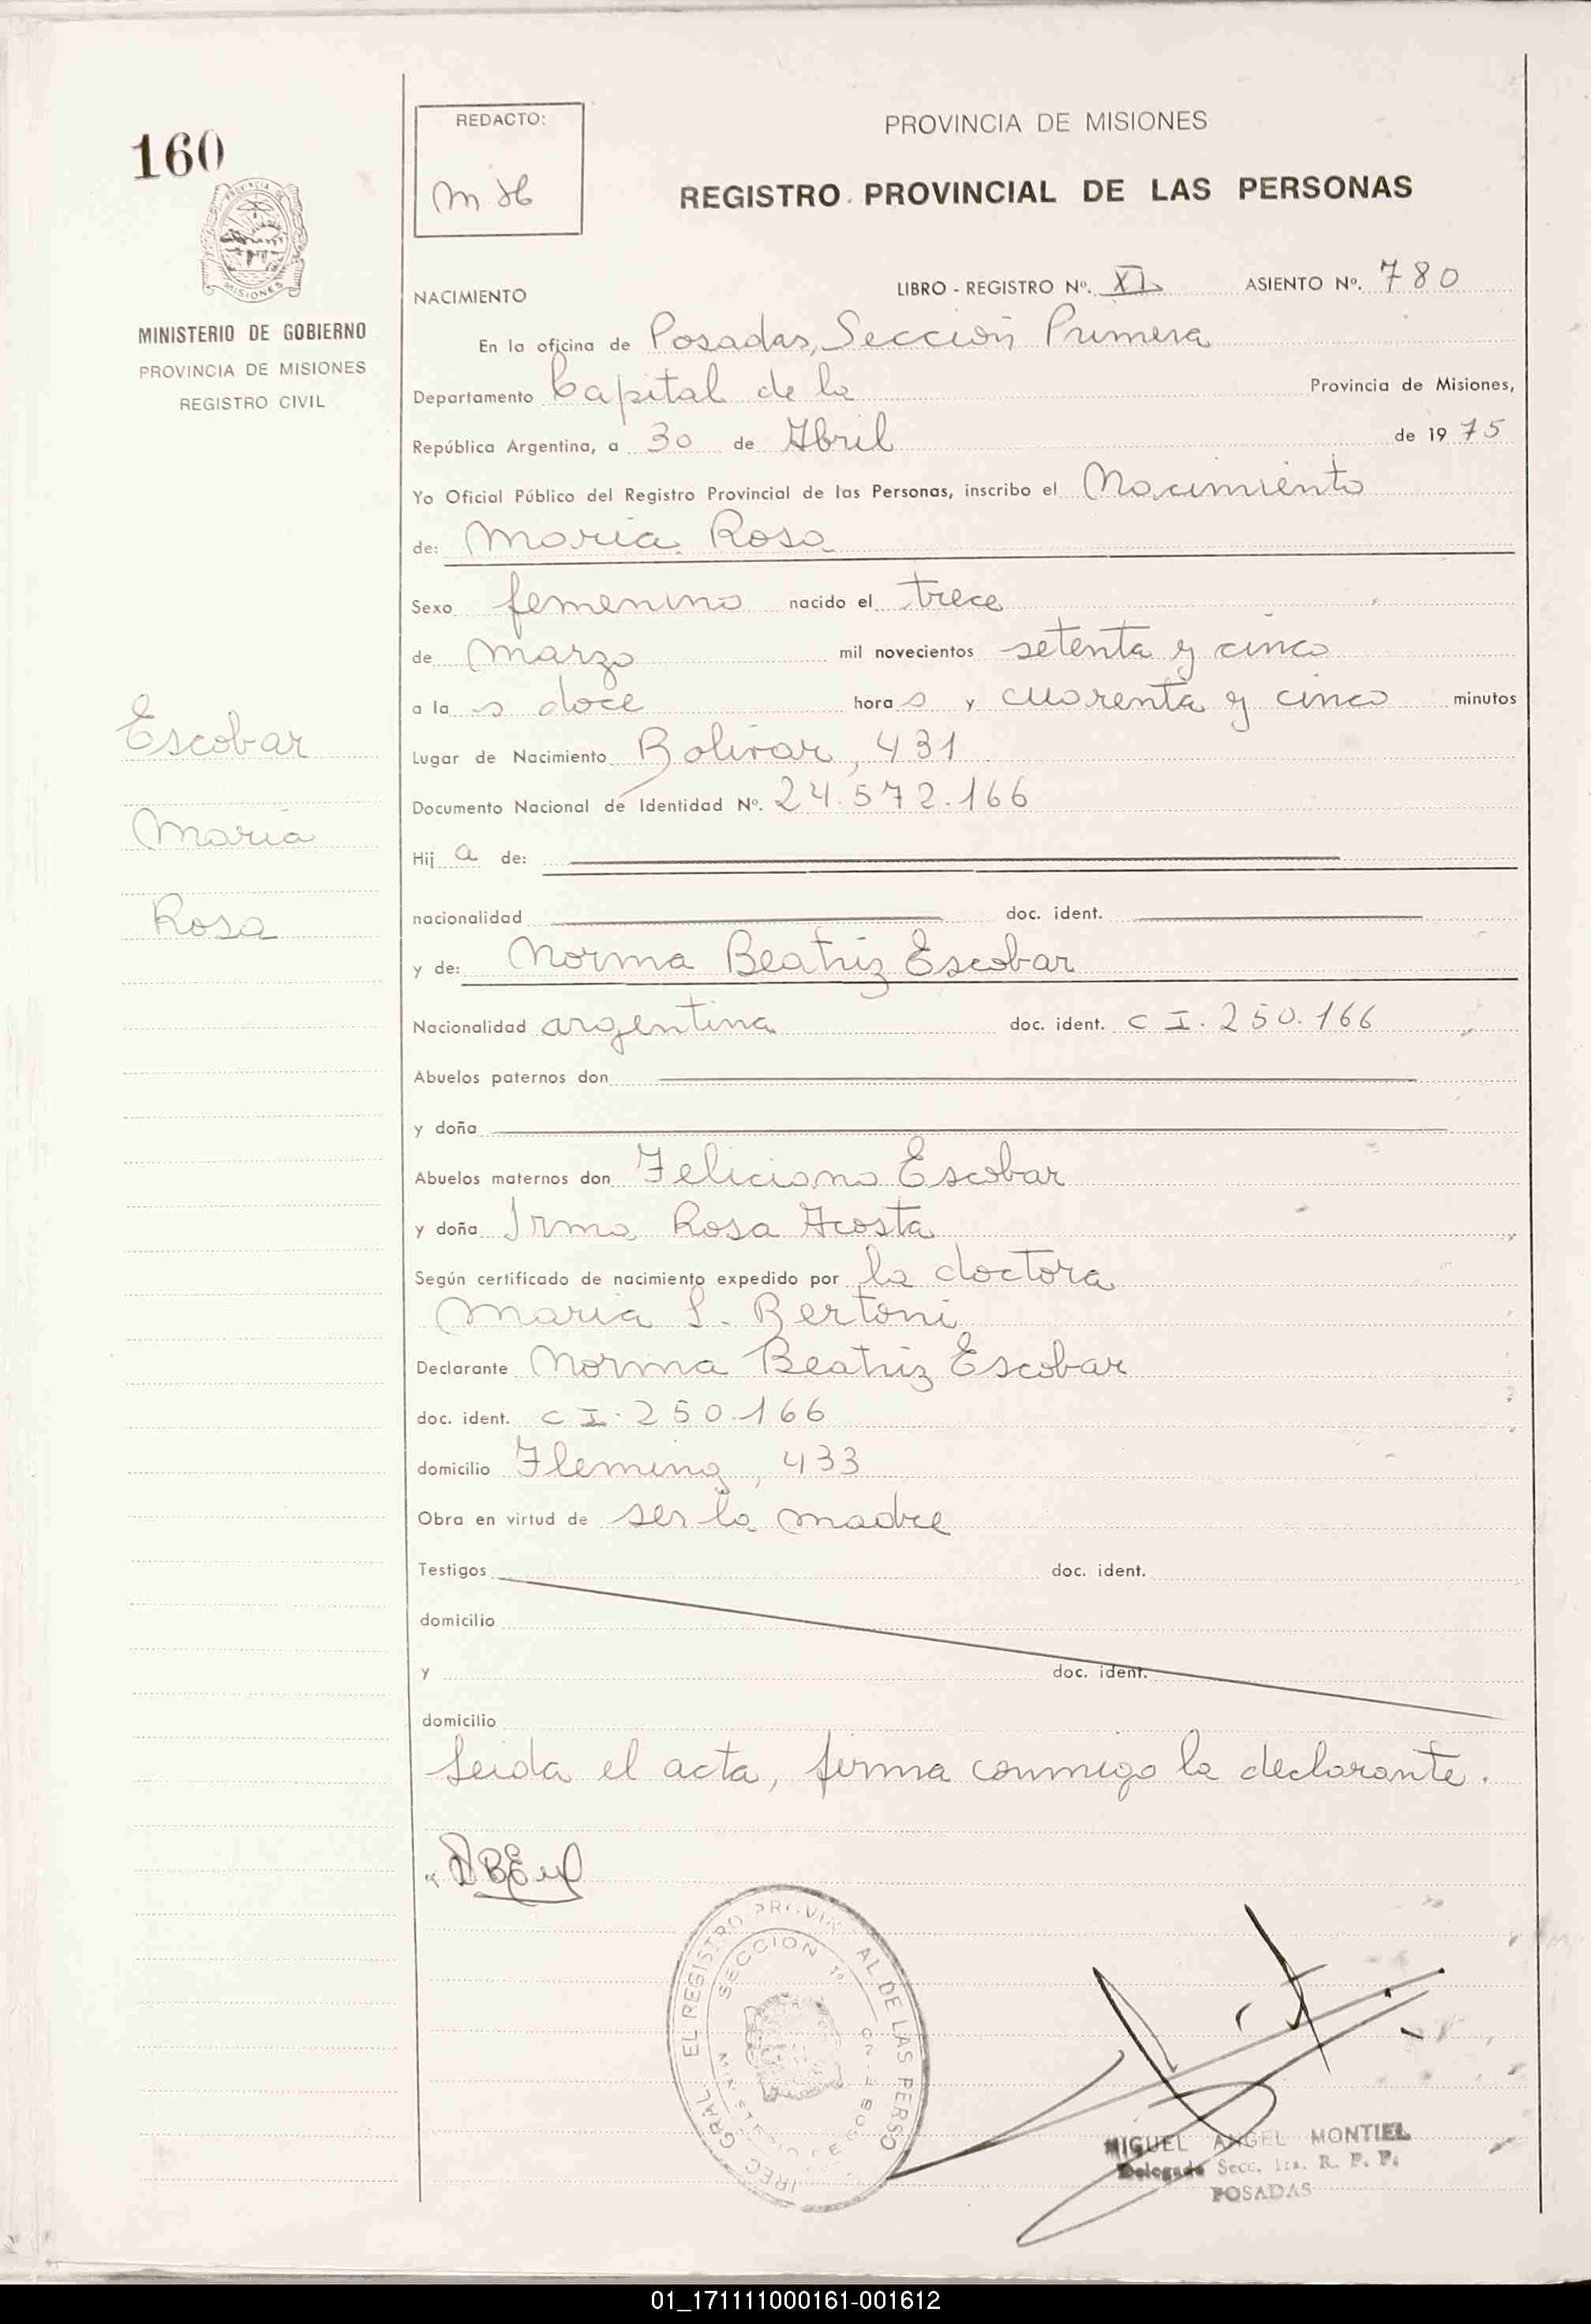 160
REDACTO:
PROVINCIA DE MISIONES
REGISTRO PROVINCIAL DE LAS PERSONAS
MISIONES
MINISTERIO DE GOBIERNO
PROVINCIA DE MISIONES
REGISTRO CIVIL
NACIMIENTO LIBRO - REGISTRO Nº. XI ASIENTO Nº. 780
En la oficina de Posadas, Sección Primera
Departamento Capital de la Provincia de Misiones,
República Argentina, a 30 de Abril de 1975
Yo Oficial Público del Registro Provincial de las Personas, inscribo el Nacimiento
de: María Rosa
Sexo femenino nacido el trece
de marzo mil novecientos setenta y cinco
a la s doce hora s y cuarenta y cinco minutos
Escobar
María
Rosa
Lugar de Nacimiento Bolívar, 431
Documento Nacional de Identidad Nº. 24.572.166
Hij a de:
nacionalidad doc. ident.
y de: Norma Beatriz Escobar
Nacionalidad argentina doc. ident. C I. 250.166
Abuelos paternos don
y doña
Abuelos maternos don Feliciano Escobar
y doña Irma Rosa Acosta
Según certificado de nacimiento expedido por la doctora
María S. Bertoni
Declarante Norma Beatriz Escobar
doc. ident. C I. 250.166
domicilio Fleming, 433
Obra en virtud de ser la madre
Testigos doc. ident.
domicilio
y doc. ident.
domicilio
Leida el acta, firma conmigo la declarante.
SECCION 1ª
MIGUEL ANGEL MONTIEL
Delegado Secc. 1ra. R. P. P.
POSADAS
01_171111000161-001612